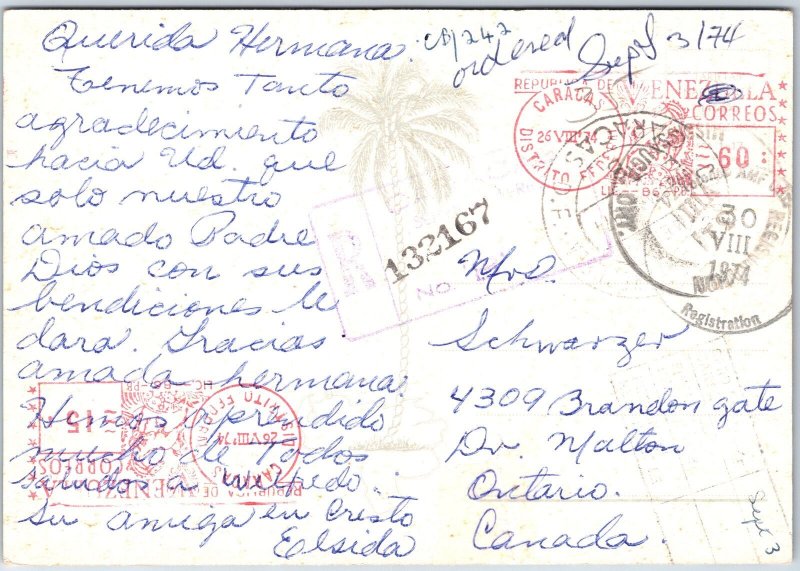 Querida Hermana.
Tenemos Tanto
agradecimiento
hacia Ud. que
solo nuestro
amado Padre
Dios con sus
bendiciones le
dara. Gracias
amada hermana.
Hemos aprendido
mucho de Todos
saludos a Wilfredo
Su amiga en Cristo
Elsida
CB/242
ordered Sept 3/74
REPUBLICA DE VENEZUELA
CORREOS
CARACAS
26 VIII 74
DISTRITO FEDERAL
60
30
VIII
1974
Registration
132167
NO.
Mrs.
Schwarzer
4309 Brandon gate
Dr. Malton
Ontario.
Canada.
Sept 3
REPUBLICA DE VENEZUELA
CORREOS
CARACAS
26 VIII 74
DISTRITO FEDERAL
15